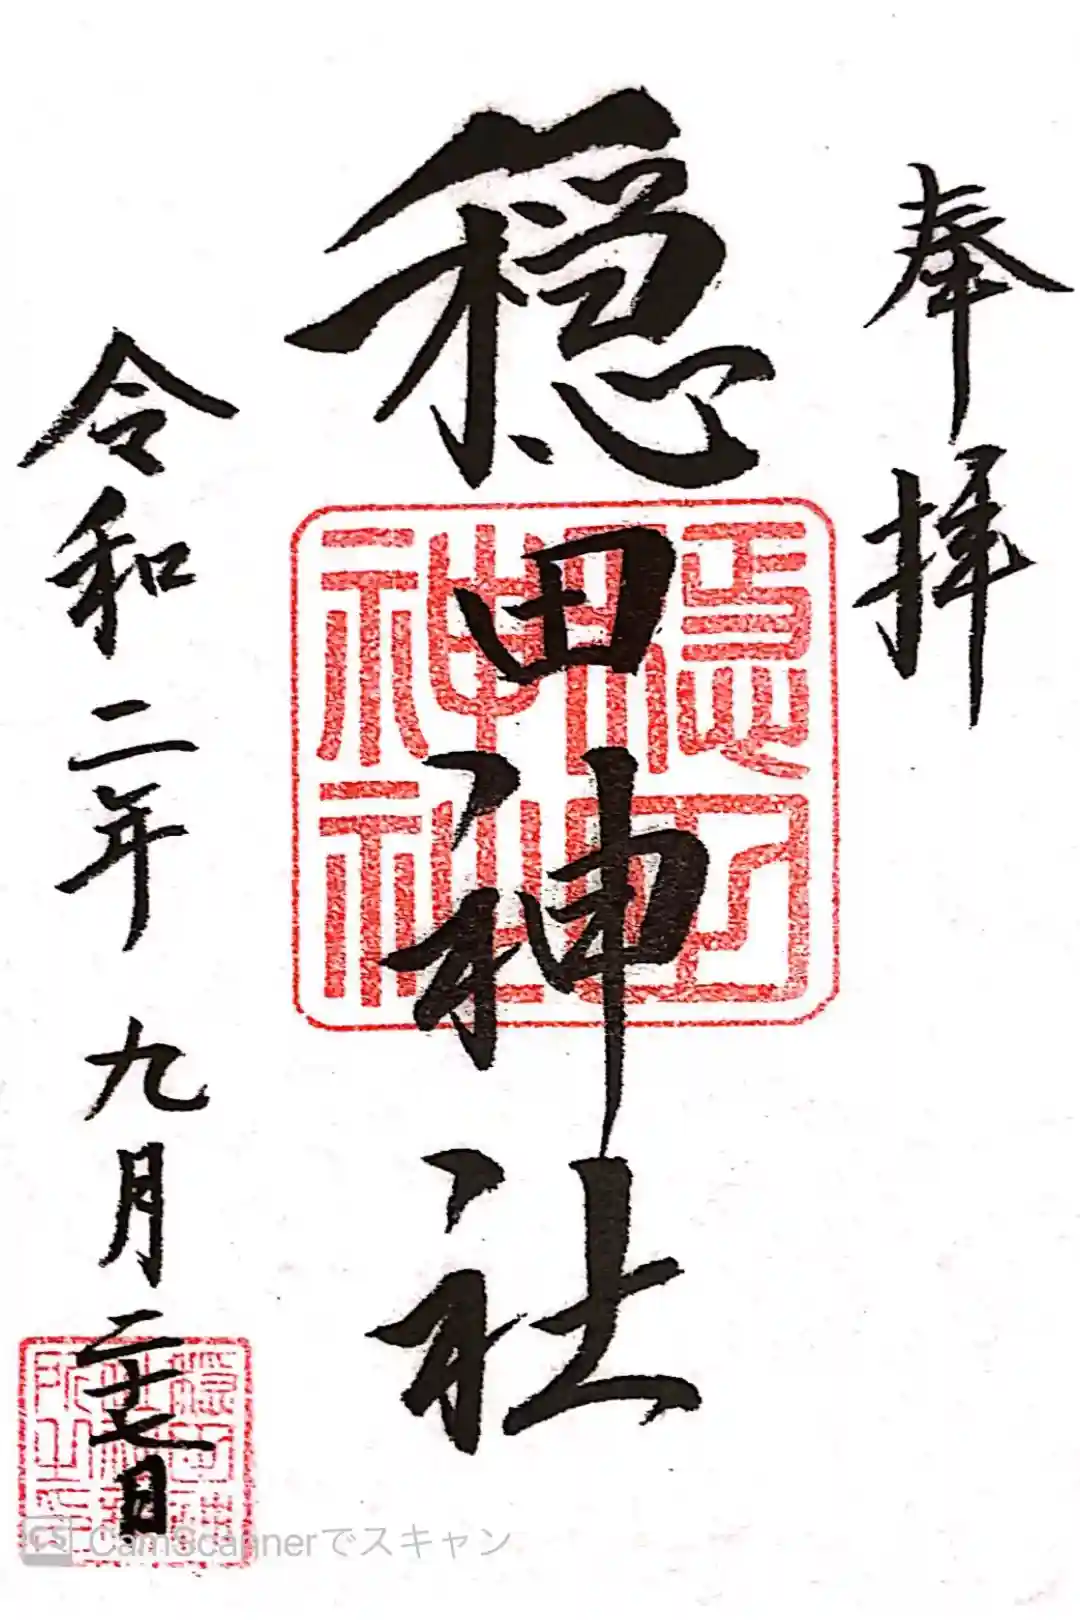 奉拝
穏田神社
穏田神社
令和二年九月二十七日
CS CamScannerでスキャン